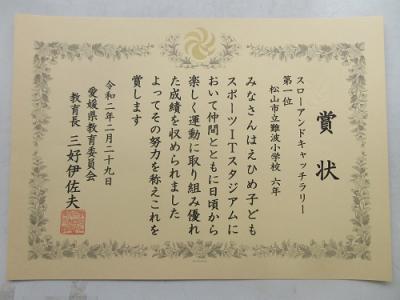 賞状
スローアンドキャッチラリー
第一位
松山市立難波小学校 六年
みなさんはえひめ子ども
スポーツITスタジアムに
おいて仲間とともに日頃から
楽しく運動に取り組み優れ
た成績を収められました
よってその努力を称えこれを
賞します
令和二年二月二十九日
愛媛県教育委員会
教育長 三好伊佐夫